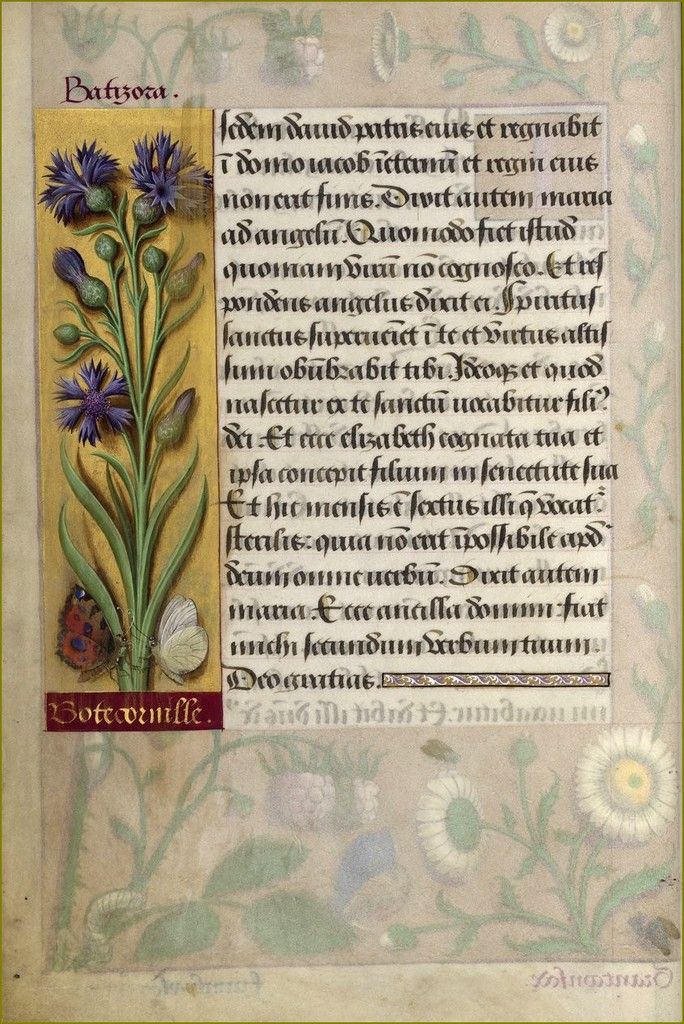 Batizora.
sedem dauid patris eius et regnabit
ī domo iacob īeternū et regni eius
non erit finis. Dixit autem maria
ad angelū. Quomodo fiet istud
quoniam virū nō cognosco. Et res
pondens angelus dixit ei. Spiritus
sanctus superueniet ī te et virtus altis
simi obūbrabit tibi. Ideoq; et quod
nascetur ex te sanctū uocabitur fili⁹
dei. Et ecce elizabeth cognata tua et
ipsa concepit filium in senectute sua
Et hic mensis ē sextus illi q̄ vocat᷑
sterilis: quia nō erit īpossibile apd᷑
deum omne uerbū. Dixit autem
maria. Ecce ancilla domini: fiat
michi secundum verbum tuum.
Deo gratias.
Botecornille.